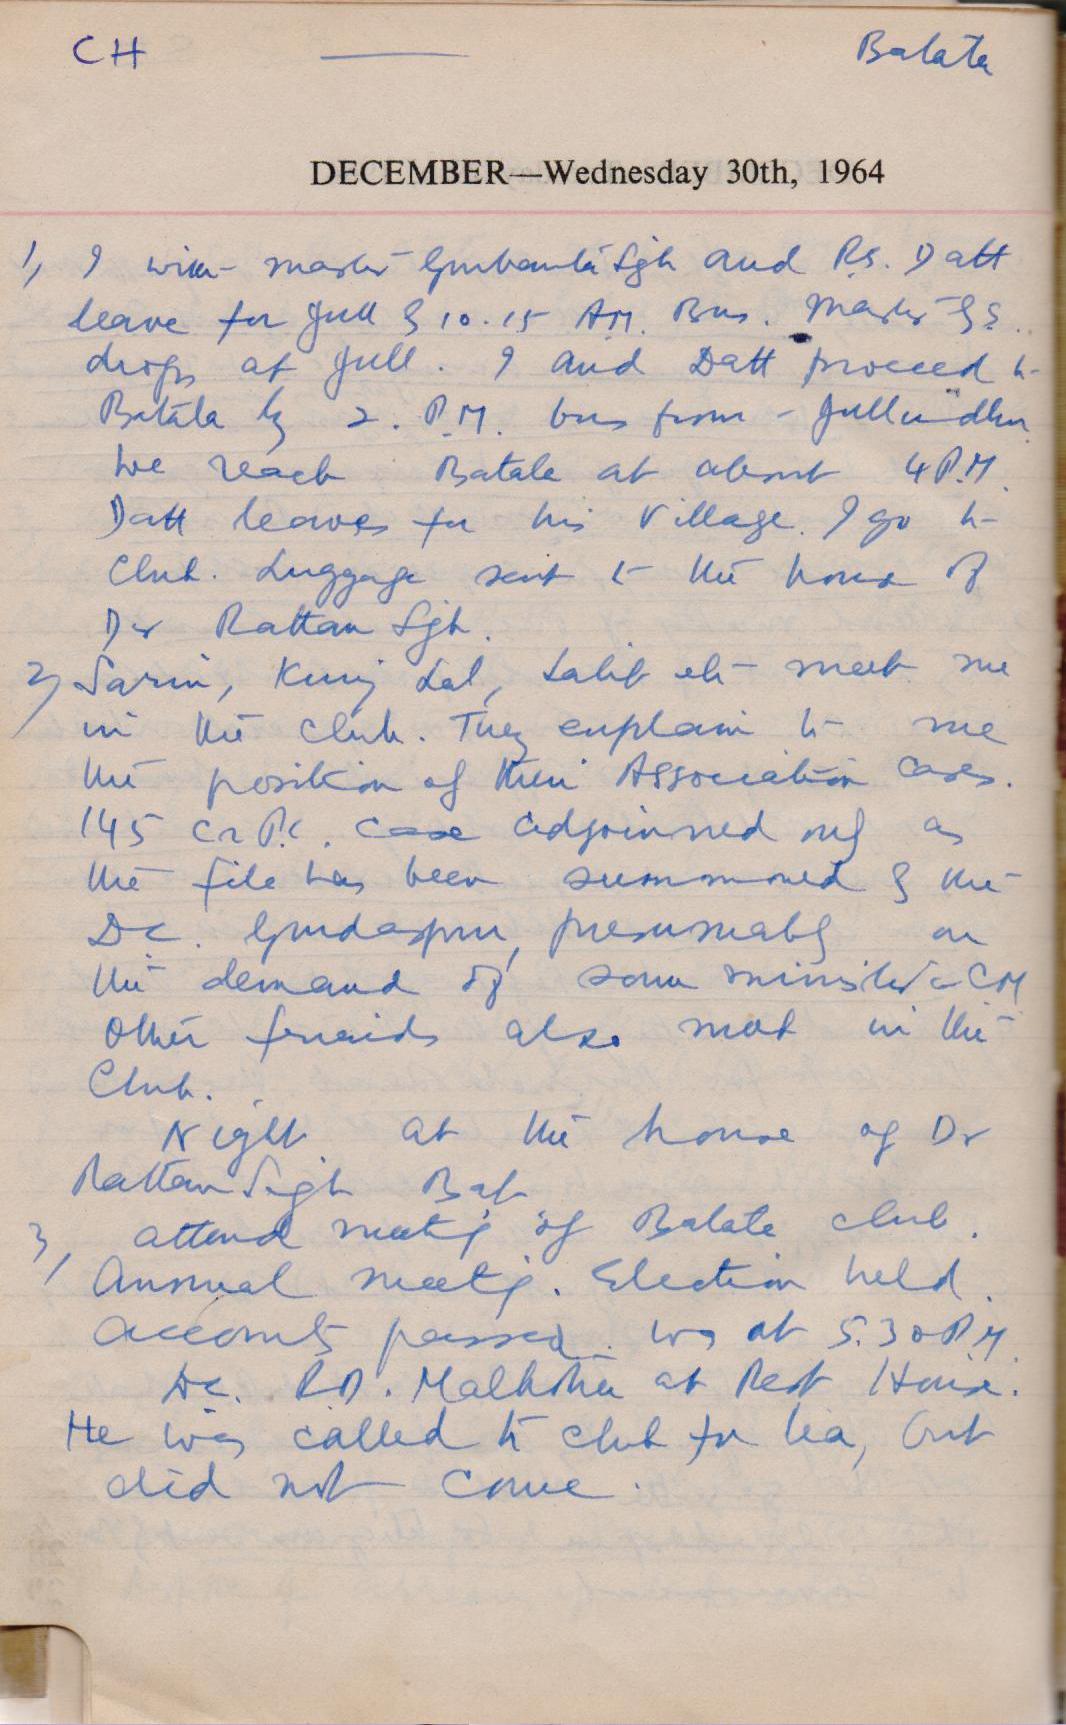 CH — Batala
DECEMBER—Wednesday 30th, 1964
1, I with master Gurbanta Sgh and P.S. Datt
leave for Jull by 10.15 AM. Bus. Master G.S.
drops at Jull. I and Datt proceed to
Batala by 2. P.M. bus from - Jullundhur.
We reach Batala at about 4 P.M.
Datt leaves for his village. I go to
Club. Luggage sent to the house of
Dr Rattan Sgh.
2, Sarin, Kunj Lal, Lalit etc meet me
in the club. They explain to me
the position of their Association cases.
145 Cr P.C. case adjourned only as
the file has been summoned by the
DC. Gurdaspur, presumably on
the demand of some minister or CM
Other friends also met in the
Club.
Night at the house of Dr
Rattan Singh Bat
3, attend meetig of Batala club.
Annual meetig. Election held.
Accounts passed. was at 5.30 P.M.
DC. Malhotra at Rest House.
He was called to club for tea, but
did not come.